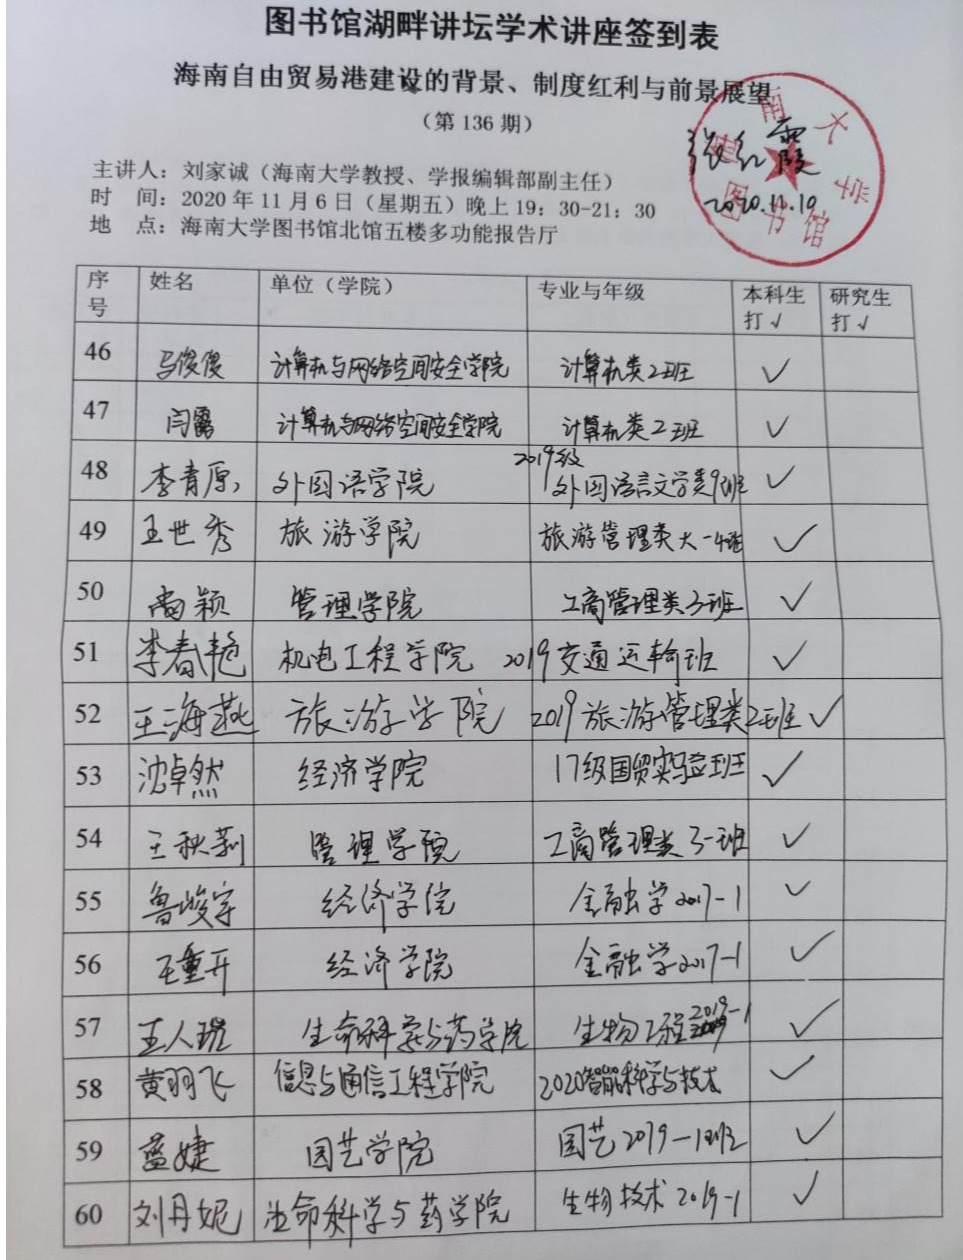 图书馆湖畔讲坛学术讲座签到表
海南自由贸易港建设的背景、制度红利与前景展望
(第 136 期)
海南大学图书馆
张红霞
2020.11.10
主讲人：刘家诚（海南大学教授、学报编辑部副主任）
时 间：2020 年 11 月 6 日（星期五）晚上 19：30-21：30
地 点：海南大学图书馆北馆五楼多功能报告厅
序号 姓名 单位（学院） 专业与年级 本科生打√ 研究生打√
46 马俊俊 计算机与网络空间安全学院 计算机类2班 ✓
47 闫露 计算机与网络空间安全学院 计算机类2班 ✓
48 李青原 外国语学院 2019级外国语言文学类9班 ✓
49 王世秀 旅游学院 旅游管理类大一4班 ✓
50 尚颖 管理学院 工商管理类3班 ✓
51 李春艳 机电工程学院 2019交通运输班 ✓
52 王海燕 旅游学院 2019旅游管理类2班 ✓
53 沈卓然 经济学院 17级国贸实验班 ✓
54 王秋莉 管理学院 工商管理类3班 ✓
55 鲁峻宇 经济学院 金融学2017-1 ✓
56 王重开 经济学院 金融学2017-1 ✓
57 王人 生命科学与药学院 生物工程2019-1 ✓
58 黄羽飞 信息与通信工程学院 2020智能科学与技术 ✓
59 蓝婕 园艺学院 园艺2019-1班 ✓
60 刘丹妮 生命科学与药学院 生物技术2019-1 ✓